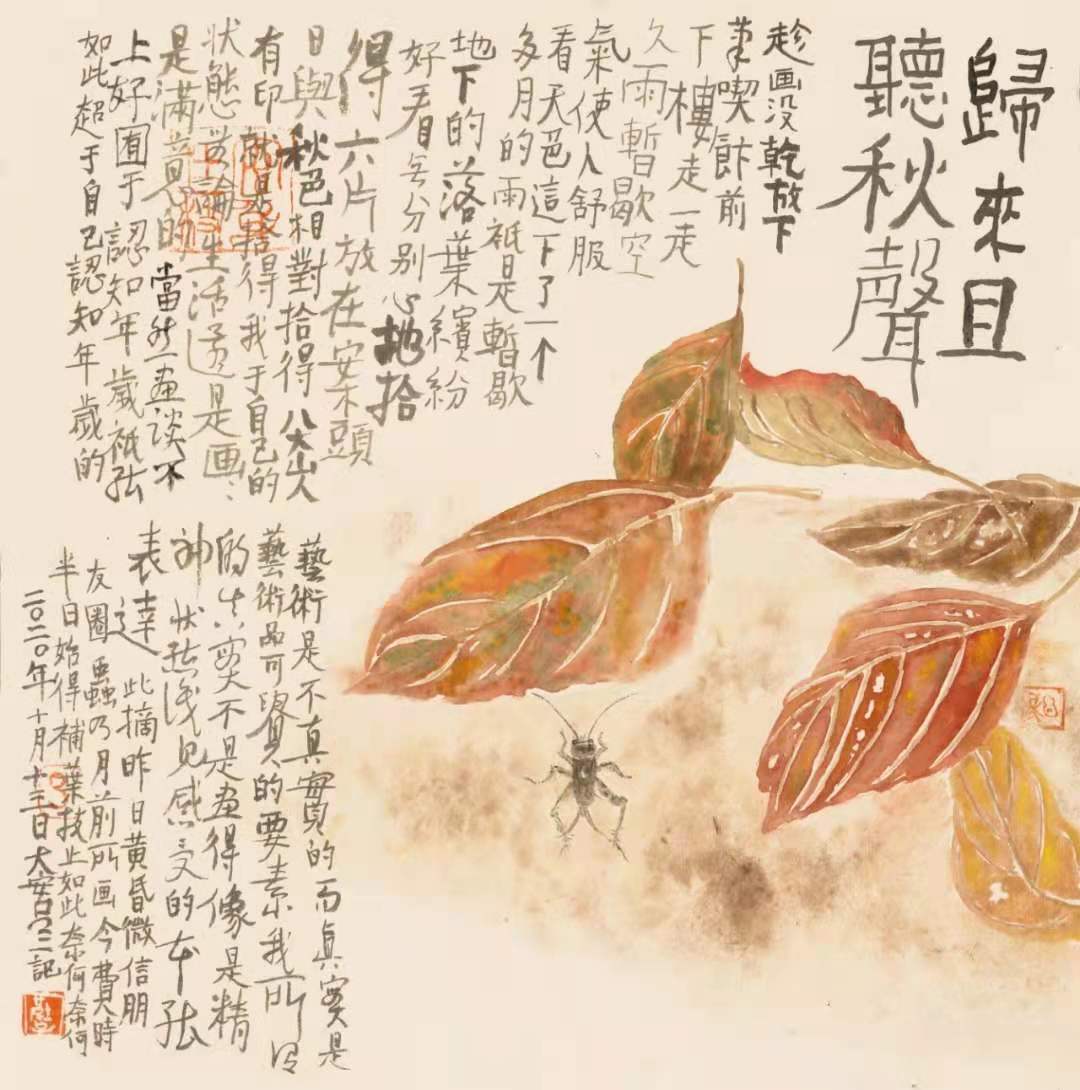 歸來且
聽秋聲
趁画没乾放下
筆喫飰前
下樓走一走
久雨暫歇空
氣使人舒服
看天色這下了一个
多月的雨祇是暫歇
地下的落葉繽紛
好看无分别心地拾
得六片放在案頭
日與秋色相對拾得八大山人
有印就是拾得我于自己的
状態無論生活還是画
是滿意的當然画談不
上好囿于認知年歲祇能
如此超于自己認知年歲的
藝術是不真實的而真實是
藝術品可貴的要素我所谓
的真实不是画得像是精
神状態淺見感受的本能
表達此摘昨日黄昏微信朋
友圈蟲乃月前所画今費時
半日始得補葉技止如此奈何奈何
二〇二〇年十月十三日大安記